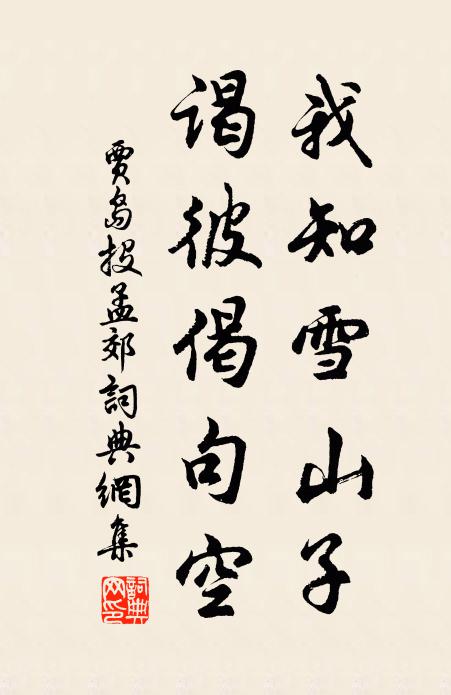 我知雪山子
谒彼偈句空
賈島投孟郊詞典網集
詞典
网印